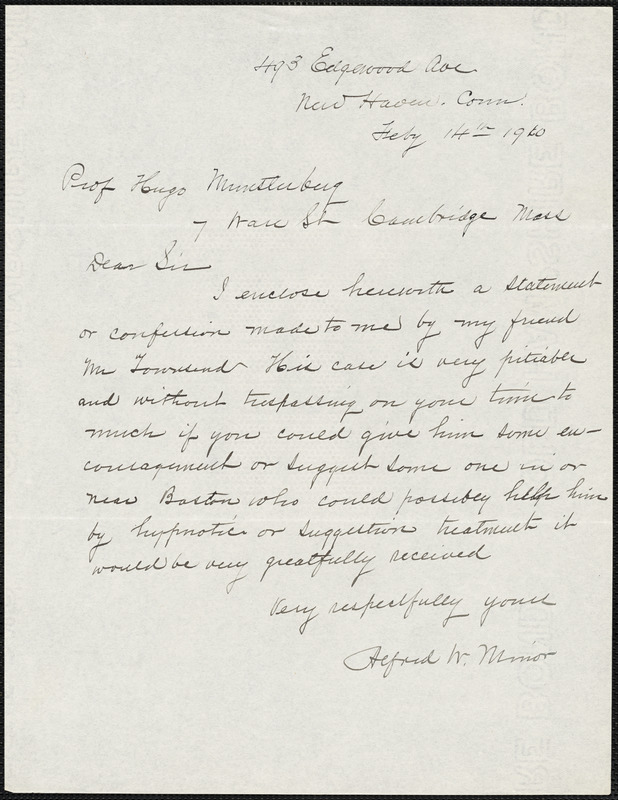 493 Edgewood Ave
New Haven. Conn.
Feby 14th 1910
Prof Hugo Munsterberg
7 Ware St Cambridge Mass
Dear Sir
I enclose herewith a statement
or confession made to me by my friend
Mr Townsend. His case is very pitiable
and without trespassing on your time to
much if you could give him some en-
couragement or suggest some one in or
near Boston who could possibly help him
by hypnotic or suggestion treatment it
would be very greatfully received
Very respectfully yours
Alfred W. Minor